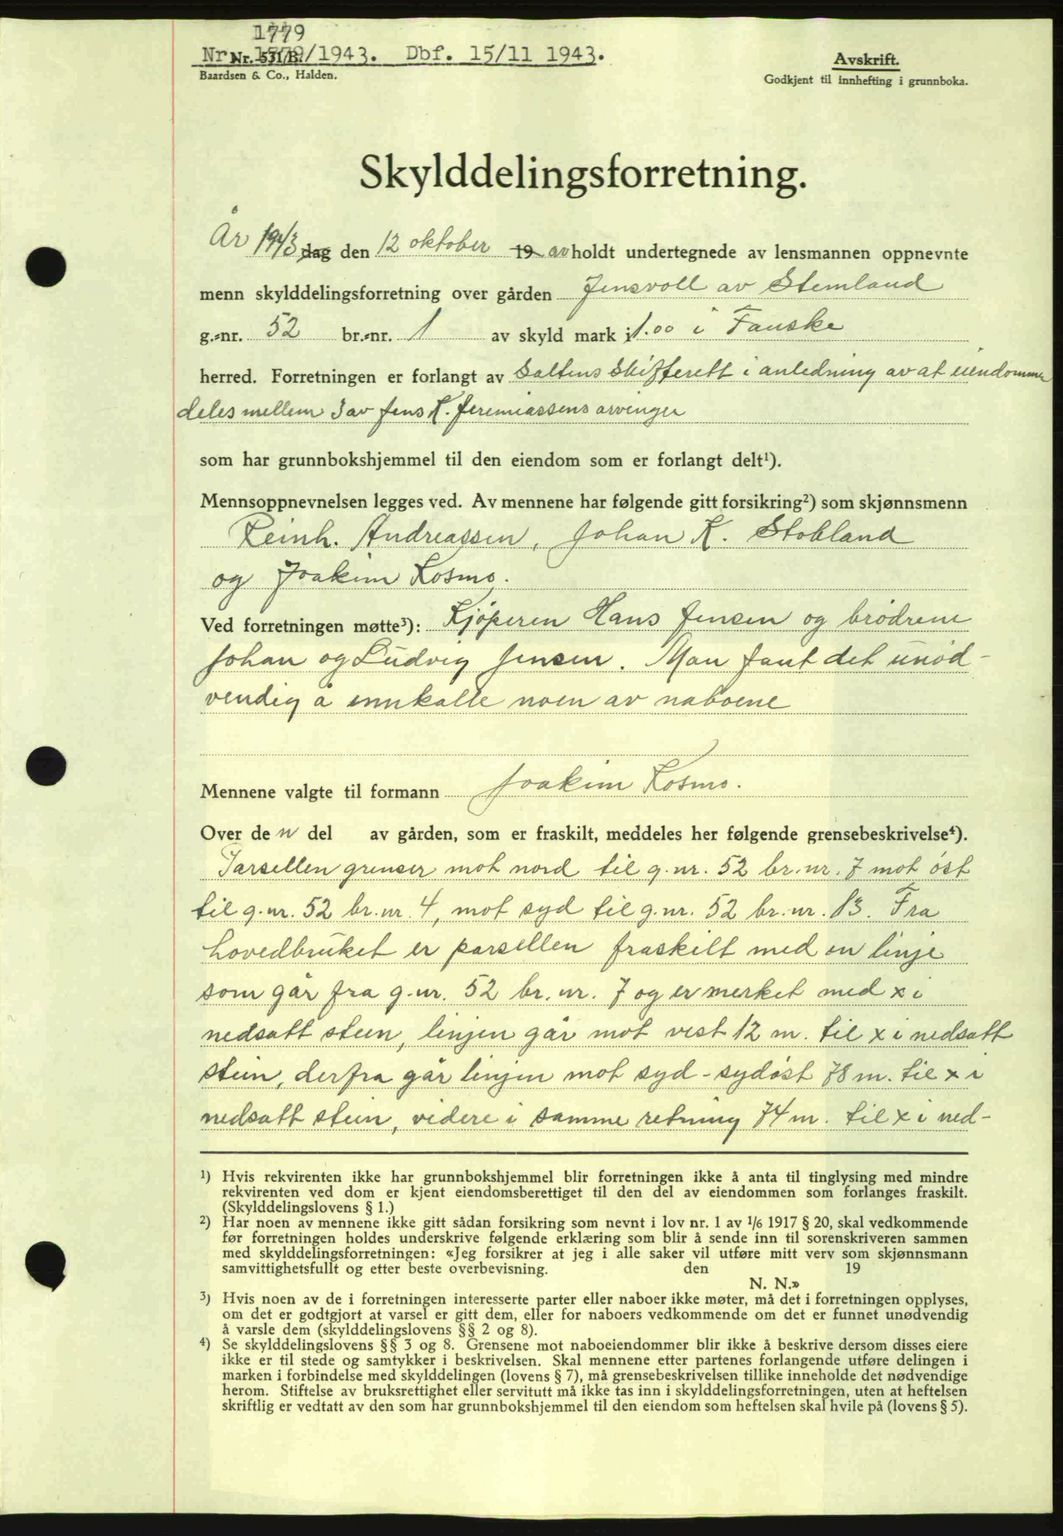 1779
Nr. 1779/1943. Dbf. 15/11 1943.
Nr. 531/B.
Baardsen & Co., Halden.
Avskrift.
Godkjent til innhefting i grunnboka.
Skylddelingsforretning.
År 1943 dag den 12 oktober 19 avholdt undertegnede av lensmannen oppnevnte
menn skylddelingsforretning over gården Jensvoll av Stemland
g.-nr. 52 br.-nr. 1 av skyld mark 1.00 i Fauske
herred. Forretningen er forlangt av Saltens Skifterett i anledning av at eiendommen
deles mellem 3 av Jens K. Jeremiassens arvinger
som har grunnbokshjemmel til den eiendom som er forlangt delt¹).
Mennsoppnevnelsen legges ved. Av mennene har følgende gitt forsikring²) som skjønnsmenn
Reinh. Andreassen, Johan K. Stokland
og Joakim Kosmo.
Ved forretningen møtte³): Kjøperen Hans Jensen og brødrene
Johan og Ludvig Jensen. Man fant det unød-
vendig å innkalle noen av naboene
Mennene valgte til formann Joakim Kosmo.
Over den del av gården, som er fraskilt, meddeles her følgende grensebeskrivelse⁴).
Parsellen grenser mot nord til g.nr. 52 br.nr. 7 mot øst
til g.nr. 52 br.nr. 4, mot syd til g.nr. 52 br.nr. 13. Fra
hovedbruket er parsellen fraskilt med en linje
som går fra g.nr. 52 br.nr. 7 og er merket med x i
nedsatt stein, linjen går mot vest 12 m. til x i nedsatt
stein, derfra går linjen mot syd-sydøst 78 m. til x i
nedsatt stein, videre i samme retning 74 m. til x i ned-
¹) Hvis rekvirenten ikke har grunnbokshjemmel blir forretningen ikke å anta til tinglysing med mindre
rekvirenten ved dom er kjent eiendomsberettiget til den del av eiendommen som forlanges fraskilt.
(Skylddelingslovens § 1.)
²) Har noen av mennene ikke gitt sådan forsikring som nevnt i lov nr. 1 av 1/6 1917 § 20, skal vedkommende
før forretningen holdes underskrive følgende erklæring som blir å sende inn til sorenskriveren sammen
med skylddelingsforretningen: «Jeg forsikrer at jeg i alle saker vil utføre mitt verv som skjønnsmann
samvittighetsfullt og etter beste overbevisning. den 19
N. N.»
³) Hvis noen av de i forretningen interesserte parter eller naboer ikke møter, må det i forretningen opplyses,
om det er godtgjort at varsel er gitt dem, eller for naboers vedkommende om det er funnet unødvendig
å varsle dem (skylddelingslovens §§ 2 og 8).
⁴) Se skylddelingslovens §§ 3 og 8. Grensene mot naboeiendommer blir ikke å beskrive dersom disses eiere
ikke er til stede og samtykker i beskrivelsen. Skal mennene etter partenes forlangende utføre delingen i
marken i forbindelse med skylddelingen (lovens § 7), må grensebeskrivelsen tillike inneholde det nødvendige
herom. Stiftelse av bruksrettighet eller servitutt må ikke tas inn i skylddelingsforretningen, uten at heftelsen
skriftlig er vedtatt av den som har grunnbokshjemmel til den eiendom som heftelsen skal hvile på (lovens § 5).